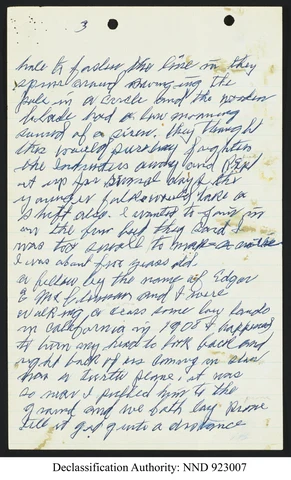 3
hole to fasten the line in they
spun around swinging the
pole in a circle and the wooden
blade had a low moaning
sound of a siren. They thought
this would surely frighten
the away and kept
it up for several days the
younger folks would take a
shift also. I wanted to join in
on the fun but they said I
was too small to make
I was about five years old.
a fellow by the name of Edgar
E Mc and I were
walking across some low lands
in California in 1908 I happened
to turn my head to look back and
right back of us coming in
was a plane, it was
so near I pulled him to the
ground and we both lay prone
till it got quite a distance
Declassification Authority: NND 923007